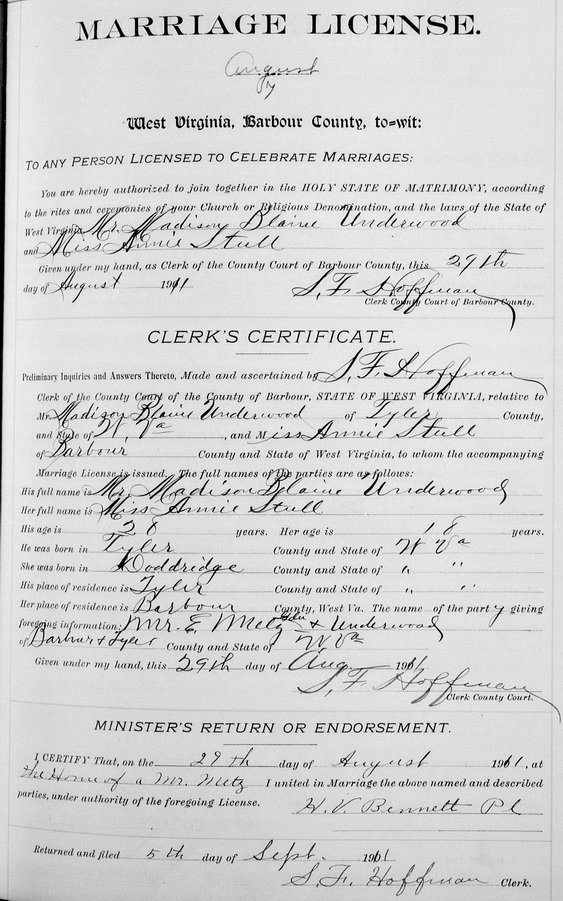 MARRIAGE LICENSE.
August
West Virginia, Barbour County, to=wit:
TO ANY PERSON LICENSED TO CELEBRATE MARRIAGES:
You are hereby authorized to join together in the HOLY STATE OF MATRIMONY, according
to the rites and ceremonies of your Church or Religious Denomination, and the laws of the State of
West Virginia, Mr. Madison Blaine Underwood
and Miss Annie Stull
Given under my hand, as Clerk of the County Court of Barbour County, this 29th
day of August 1911
S. F. Hoffman
Clerk County Court of Barbour County.
CLERK'S CERTIFICATE.
Preliminary Inquiries and Answers Thereto, Made and ascertained by S. F. Hoffman
Clerk of the County Court of the County of Barbour, STATE OF WEST VIRGINIA, relative to
Mr. Madison Blaine Underwood of Tyler County,
and State of W Va, and Miss Annie Stull
of Barbour County and State of West Virginia, to whom the accompanying
Marriage License is issued. The full names of the parties are as follows:
His full name is Mr. Madison Blaine Underwood
Her full name is Miss Annie Stull
His age is 28 years. Her age is 18 years.
He was born in Tyler County and State of W Va
She was born in Doddridge County and State of " "
His place of residence is Tyler County and State of " "
Her place of residence is Barbour County, West Va. The name of the party giving
foregoing information: Mr. E Metz & Underwood
of Barbour & Tyler County and State of W Va
Given under my hand, this 29th day of Aug 1911
S. F. Hoffman
Clerk County Court.
MINISTER'S RETURN OR ENDORSEMENT.
I CERTIFY That, on the 29th day of August 1911, at
the Home of a Mr. Metz I united in Marriage the above named and described
parties, under authority of the foregoing License. H. V. Bennett
Returned and filed 5th day of Sept. 1911
S. F. Hoffman Clerk.